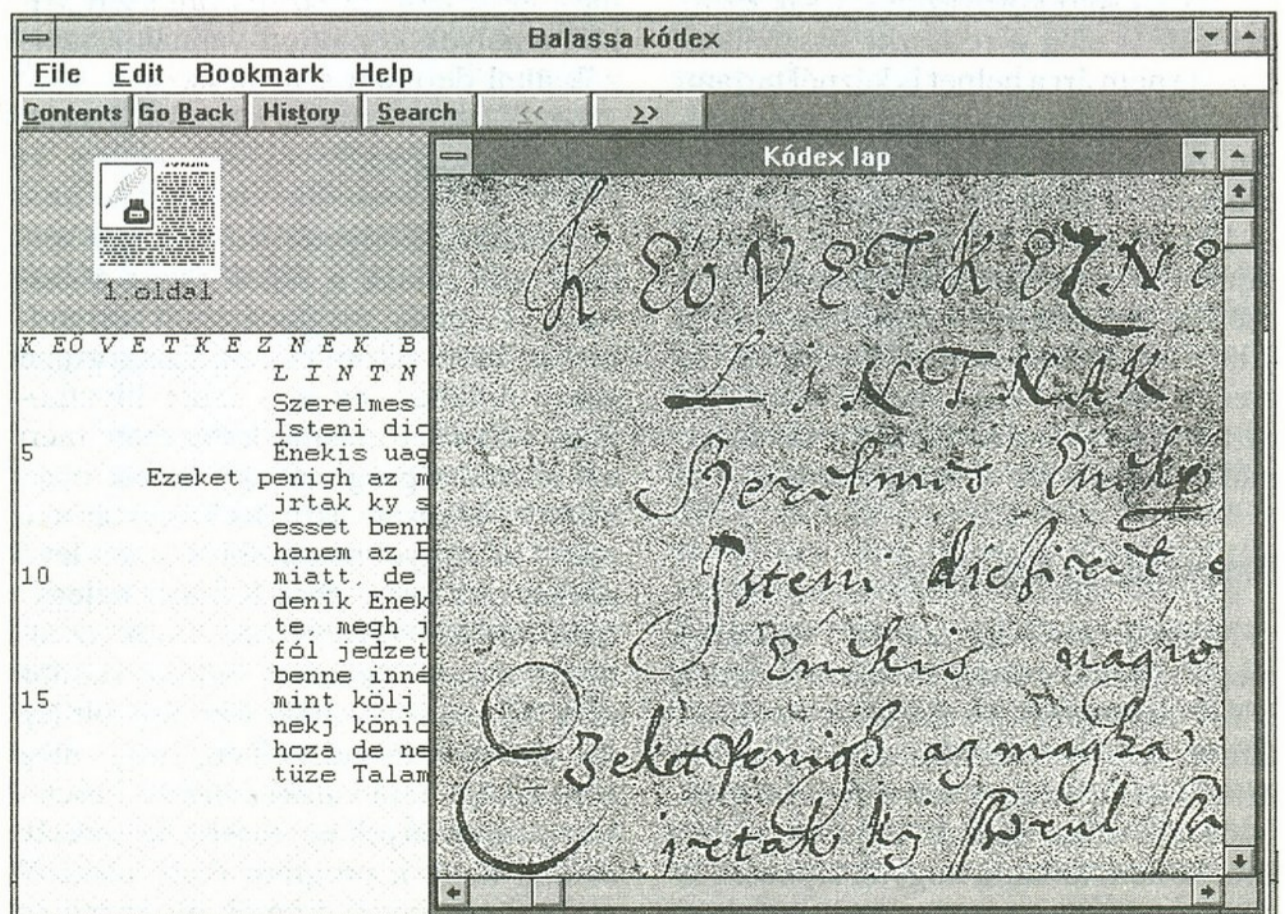 Balassa kódex
File Edit Bookmark Help
Contents Go Back History Search << >>
1.oldal
K EÖ V E T K E Z N E K B
L I N T N
Szerelmes
Isteni dic
5 Énekis uag
Ezeket penigh az m
jrtak ky s
esset benn
hanem az B
10 miatt, de
denik Enek
te megh j
fól jedzet
benne inne
15 mint kölj
nekj könic
hoza de ne
tüze Talam
Kódex lap
K EÖ V E T K E Z N E
L i N T N A K
Isteni
Enekis
Ezeket penigh az magha
jrtak kj